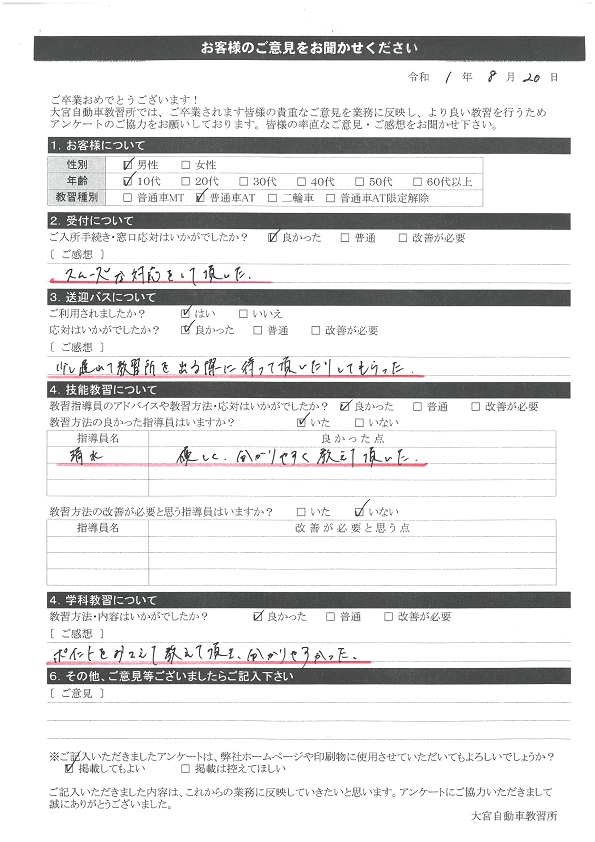 お客様のご意見をお聞かせください
令和 1 年 8 月 20 日
ご卒業おめでとうございます!
大宮自動車教習所では、ご卒業されます皆様の貴重なご意見を業務に反映し、より良い教習を行うため
アンケートのご協力をお願いしております。皆様の率直なご意見・ご感想をお聞かせ下さい。
1. お客様について
性別 ☑男性 □女性
年齢 ☑10代 □20代 □30代 □40代 □50代 □60代以上
教習種別 □普通車MT ☑普通車AT □二輪車 □普通車AT限定解除
2. 受付について
ご入所手続き・窓口応対はいかがでしたか? ☑良かった □普通 □改善が必要
[ ご感想 ]
スムーズな対応をして頂いた.
3. 送迎バスについて
ご利用されましたか? ☑はい □いいえ
応対はいかがでしたか? ☑良かった □普通 □改善が必要
[ ご感想 ]
少し遅めて教習所を出る際に待って頂いたりしてもらった.
4. 技能教習について
教習指導員のアドバイスや教習方法・応対はいかがでしたか? ☑良かった □普通 □改善が必要
教習方法の良かった指導員はいますか? ☑いた □いない
指導員名 良かった点
清水 優しく、分かりやすく教えて頂いた.
教習方法の改善が必要と思う指導員はいますか? □いた ☑いない
指導員名 改善が必要と思う点
4. 学科教習について
教習方法・内容はいかがでしたか? ☑良かった □普通 □改善が必要
[ ご感想 ]
ポイントをおさえて教えて頂き、分かりやすかった.
6. その他、ご意見等ございましたらご記入下さい
[ ご意見 ]
※ご記入いただきましたアンケートは、弊社ホームページや印刷物に使用させていただいてもよろしいでしょうか?
☑掲載してもよい □掲載は控えてほしい
ご記入いただきました内容は、これからの業務に反映していきたいと思います。アンケートにご協力いただきまして
誠にありがとうございました。
大宮自動車教習所